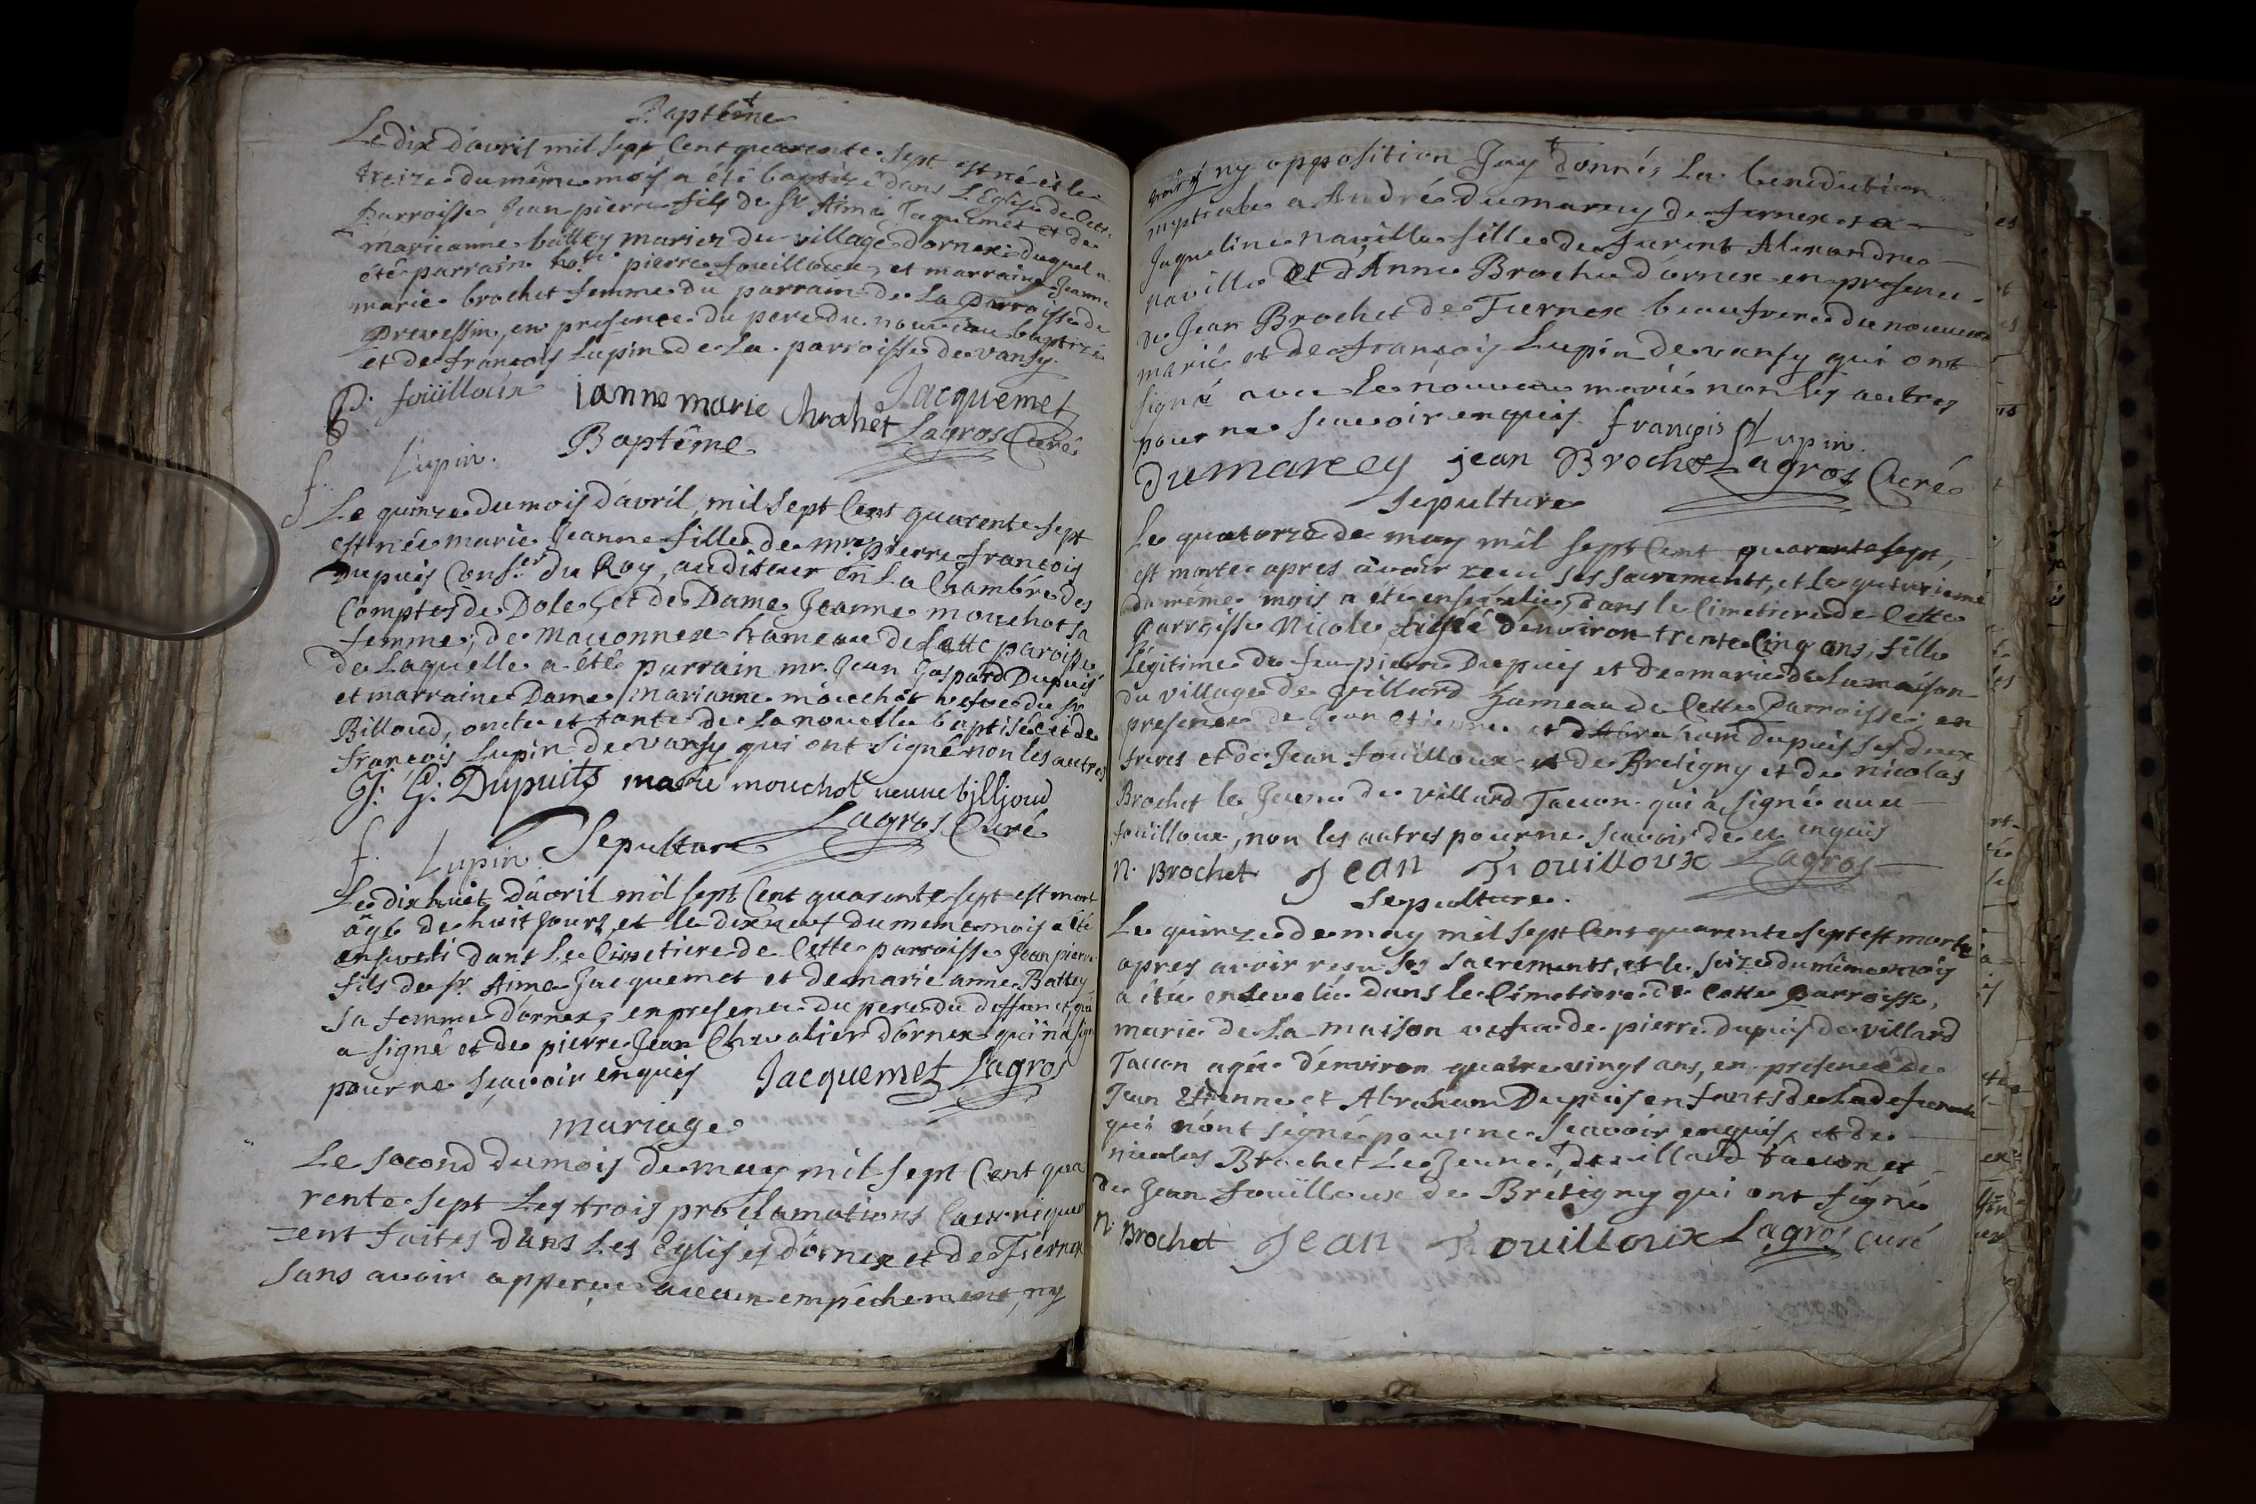 Baptême
Le dix d'avril mil sept Cent quarente sept est né et le
treize du même mois a été baptizé dans L'Eglise de Cette
Parroisse Jean pierre fils de Sr Aimé Jaquemet et de
marieanne battey mariez du village d'ornex duquel a
été parrain pierre fouilloux, et marraine Jeanne
marie brochet femme du parrain de La Parroisse de
Prevessin, en presence du pere du nouveau baptizé
et de françois Lupin de La parroisse de vansy
P. foüilloux ianne marie Jacquemet
f. Lupin. Lagros Curé
Baptême
Le quinze du mois d'avril, mil sept Cent quarente sept
est née marie Jeanne fille de mre pierre françois
Dupuis Conser du Roy, auditeur en La Chambre des
Comptes de Dole, et de Dame Jeanne mouchot sa
femme, de Maconnex hameau de Cette paroisse
de Laquelle a été parrain mr Jean Gaspard Dupuis
et marraine Dame marianne mouchot vefve du Sr
Billoud, oncle et tante de La nouvelle baptisée et de
françois Lupin de vansy qui ont signé non les autres
J. G. Dupuits marie mouchot veuve billioud
f. Lupin Lagros Curé
Sepulture
Le dix huit d'avril mil sept Cent quarente sept est mort
âgé de huit jours, et le dix neuf du meme mois a été
enseveli dans Le Cimetiere de Cette parroisse Jean pierre
fils de Sr Aimé Jacquemet et de marie anne Battey
sa femme d'ornex, en presence du pere du deffunct, qui
a signé et de pierre Jean Chevalier d'ornex qui n'a signé
pour ne sçavoir enquis Jacquemet Lagros
mariage
Le second du mois de may mil sept Cent qua
rente sept Les trois proclamations Canoniques
=ent faites dans Les Eglises d'ornex et de Fernex
sans avoir apperçu aucun empêchement, ny
ny opposition J'ay donnés La benediction
nuptiale a André Dumarcey de fernex et a
Jaqueline naville fille de furent Alexandre
naville Et d'Anne Broche d'ornex en presence
de Jean Brochet de Fernex beaufrere du nouveau
marié et de françois Lupin de vansy qui ont
signé avec Le nouveau marié non les autres
pour ne scavoir enquis. françois Lupin.
Dumarcey jean Brochet Lagros Curé
Sepulture
Le quatorze de may mil sept Cent quarente sept,
est morte apres avoir reçu ses sacrements, et le quinzieme
du même mois a été ensevelie, dans le Cimetiere de Cette
Parroisse Nicole d'environ trente Cinq ans, fille
Légitime de feu pierre Dupuis et de marie de La maison
du village de villard hameau de Cette Parroisse, en
presence de Jean etienne et d'Abraham Dupuis ses deux
freres et de Jean fouïlloux de Bretigny et de nicolas
Brochet le Jeune de villard Tacon qui a signé avec
fouïlloux, non les autres pour ne scavoir de ce enquis
N. Brochet Jean Fouilloux Lagros
Sepulture.
Le quinze de may mil sept Cent quarente sept est morte
apres avoir reçu ses sacrements, et le seize du même mois
a été ensevelie dans le Cimetiere de Cette Parroisse,
marie de La maison vefve de pierre Dupuis de villard
Tacon agée d'environ quatre vingt ans, en presence de
Jean Etienne et Abraham Dupuis enfants de La defuncte
qui n'ont signé pour ne scavoir enquis, et de
nicolas Brochet Le Jeune, de villard tacon et
de Jean fouïlloux de Brétigny qui ont signé
N. Brochet Jean Fouilloux Lagros curé